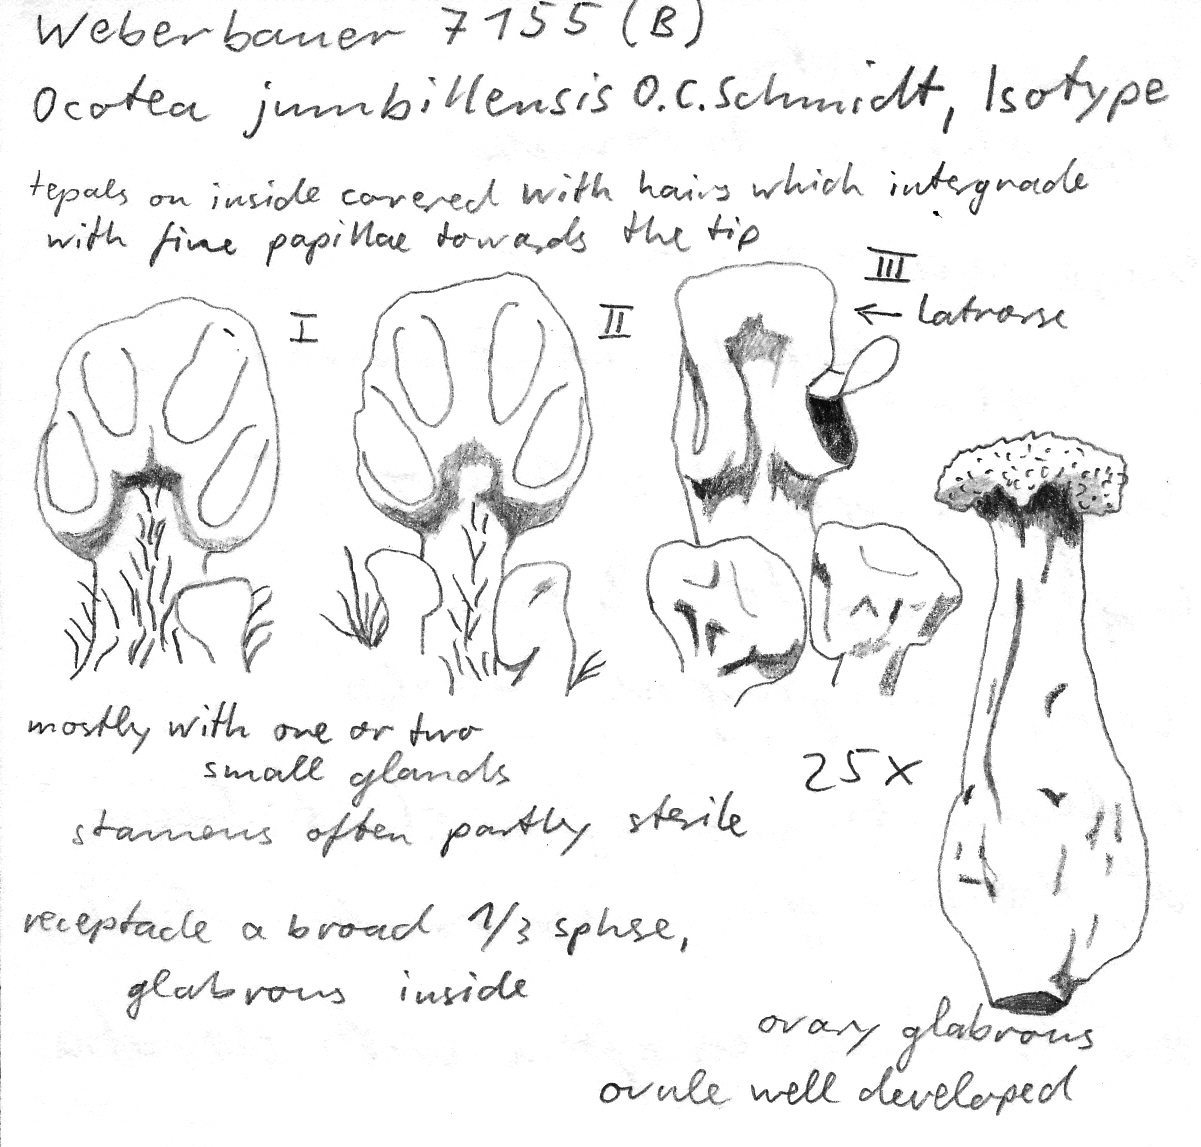 Weberbauer 7155 (B)
Ocotea jumbillensis O.C.Schmidt, Isotype
tepals on inside covered with hairs which intergrade
with fine papillae towards the tip
I
II
III
← latrorse
mostly with one or two
small glands
25x
stamens often partly sterile
receptacle a broad 1/3 sphere,
glabrous inside
ovary glabrous
ovule well developed